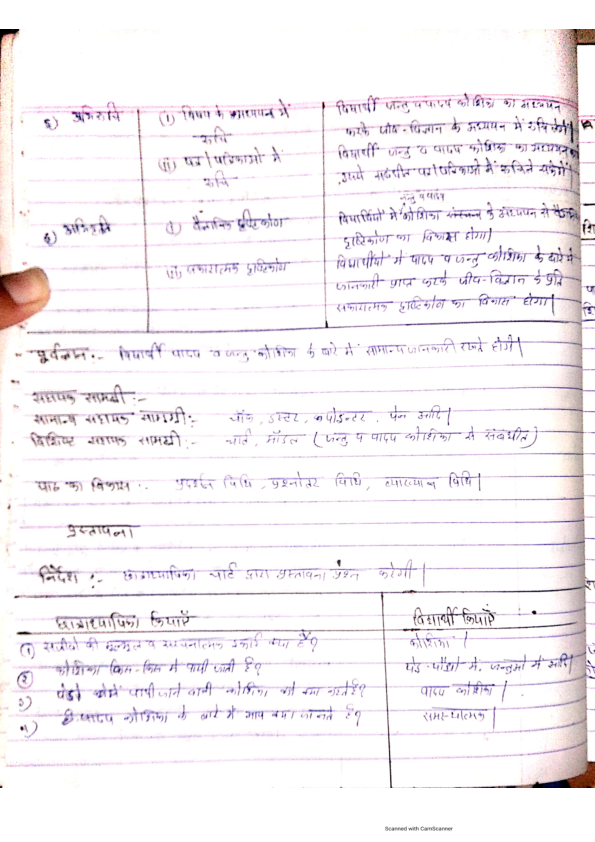 5) अभिरुचि (i) विषय के अध्ययन में रुचि
विद्यार्थी जन्तु व पादप कोशिका का अध्ययन
करके जीव-विज्ञान के अध्ययन में रुचि लेंगे।
(ii) पत्र। पत्रिकाओं में रुचि
विद्यार्थी जन्तु व पादप कोशिका का अध्ययन कर
उससे संबंधित पत्र।पत्रिकाओं में रुचि ले सकेंगे
6) अभिवृत्ति (i) वैज्ञानिक दृष्टिकोण
जन्तु व पादप
विद्यार्थियों में कोशिका संरचना के अध्ययन से वैज्ञानिक
दृष्टिकोण का विकास होगा।
(ii) सकारात्मक दृष्टिकोण
विद्यार्थीयों में पादप व जन्तु कोशिका के बारे में
जानकारी प्राप्त करके जीव-विज्ञान के प्रति
सकारात्मक दृष्टिकोण का विकास होगा।
पूर्वज्ञान :- विद्यार्थी पादप व जन्तु कोशिका के बारे में सामान्य जानकारी रखते होंगे।
सहायक सामग्री :-
सामान्य सहायक सामग्री :- चॉक, डस्टर, संकेतक, पेन आदि।
विशिष्ट सहायक सामग्री :- चार्ट, मॉडल (जन्तु व पादप कोशिका से संबंधीत)
पाठ का विकास :- प्रदर्शन विधि, प्रश्नोतर विधि, व्याख्यान विधि।
प्रस्तावना
निर्देश :- छात्राध्यापिका चार्ट द्वारा प्रस्तावना प्रश्न करेगी।
छात्राध्यापिका क्रियाएँ विद्यार्थी क्रियाएँ :
(1) सजीवो की मूलभूत व संरचनात्मक इकाई क्या है? कोशिका।
(2) कोशिका किस-किस में पायी जाती है? पेड़-पौधों में, जन्तुओं में आदि।
3) पेड़ो पौधों में पायी जाने वाली कोशिका को क्या कहते है? पादप कोशिका।
4) पादप कोशिका के बारे में आप क्या जानते है? समस्यात्मक।
Scanned with CamScanner